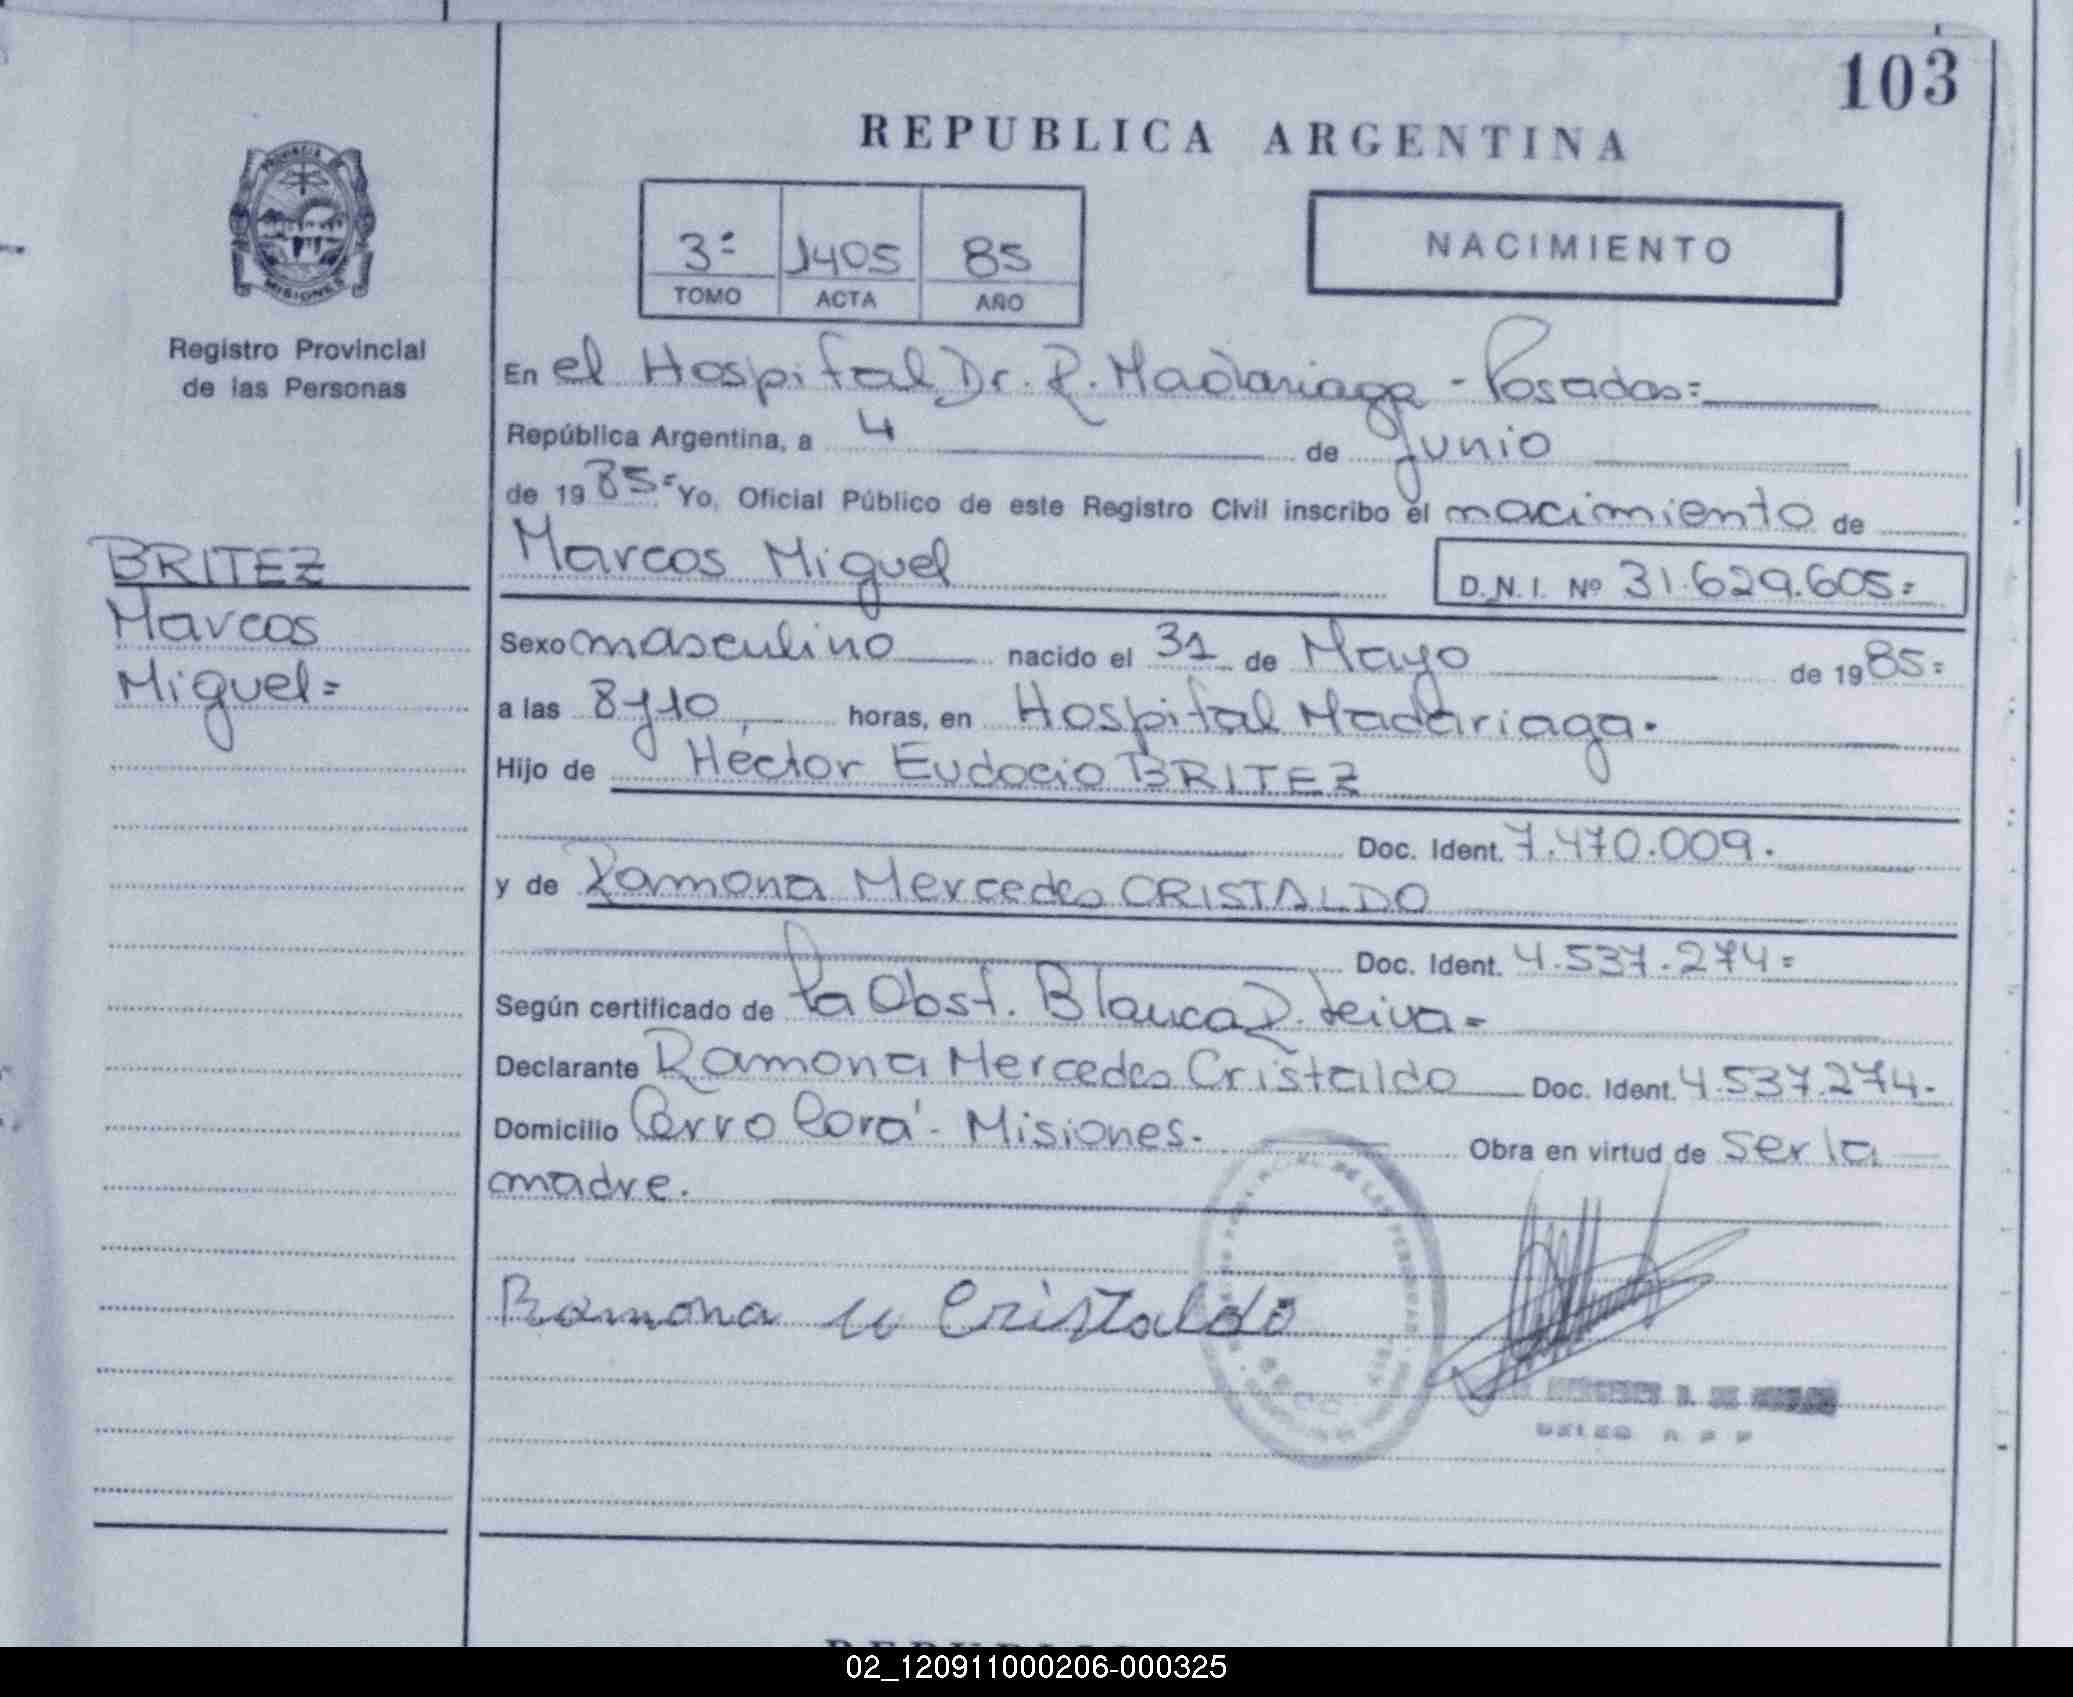 103
REPUBLICA ARGENTINA
PROVINCIA DE
MISIONES
3º 1405 85
TOMO ACTA AÑO
NACIMIENTO
Registro Provincial
de las Personas
En el Hospital Dr. R. Madariaga - Posadas=
República Argentina, a 4 de Junio
de 1985= Yo, Oficial Público de este Registro Civil inscribo el nacimiento de
Marcos Miguel D.N.I. Nº 31.629.605=
BRITEZ
Marcos
Miguel=
Sexo masculino nacido el 31 de Mayo de 1985=
a las 8y10 horas, en Hospital Madariaga.
Hijo de Héctor Eudocio BRITEZ
Doc. Ident. 7.470.009.
y de Ramona Mercedes CRISTALDO
Doc. Ident. 4.537.274=
Según certificado de la Obst. Blanca R. Leiva=
Declarante Ramona Mercedes Cristaldo Doc. Ident. 4.537.274-
Domicilio Cerro Corá - Misiones. Obra en virtud de ser la
madre.
Ramona M Cristaldo
02_120911000206-000325